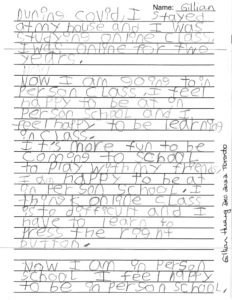 Name: Gillian
During covid, I stayed
at my house and I was
studying online
I was online for two
years.
Now I am going to in
person class. I feel
happy to be at in
person school and I
feel happy to be learning
in class.
It's more fun to be
coming to school
to play with my friend,
I am happy to be in
in person school. I
think online class
is to difficult and I
have to learn to
press the right
button.
Now I am in person
school I feel happy
to be in person school.
Gillian Huang Dec 2022 Toronto